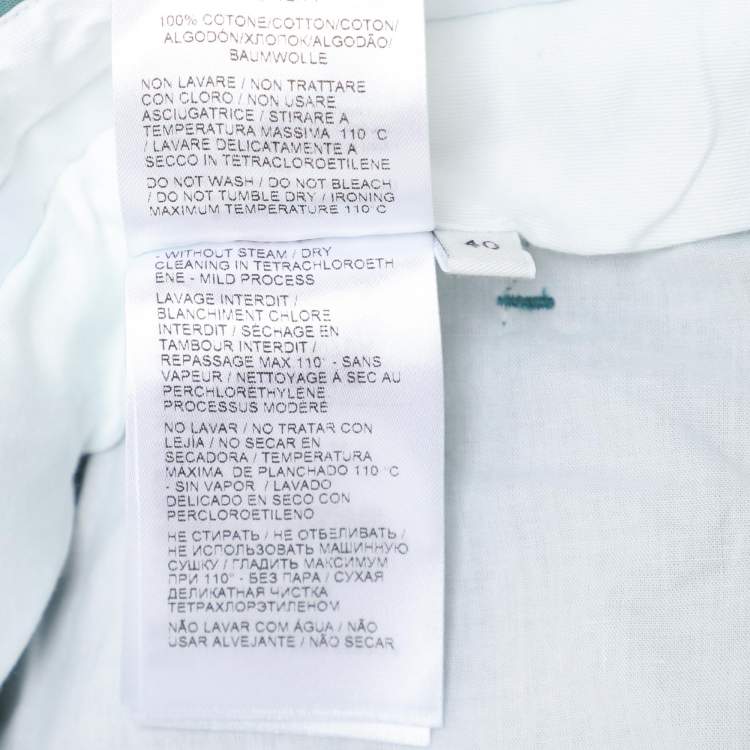 100% COTONE/COTTON/COTON/
ALGODÓN/ХЛОПОК/ALGODÃO/
BAUMWOLLE
NON LAVARE / NON TRATTARE
CON CLORO / NON USARE
ASCIUGATRICE / STIRARE A
TEMPERATURA MASSIMA 110°C
/ LAVARE DELICATAMENTE A
SECCO IN TETRACLOROETILENE
DO NOT WASH / DO NOT BLEACH
/ DO NOT TUMBLE DRY / IRONING
MAXIMUM TEMPERATURE 110°C
- WITHOUT STEAM / DRY
CLEANING IN TETRACHLOROETH
ENE - MILD PROCESS
LAVAGE INTERDIT /
BLANCHIMENT CHLORE
INTERDIT / SÉCHAGE EN
TAMBOUR INTERDIT /
REPASSAGE MAX 110° - SANS
VAPEUR / NETTOYAGE À SEC AU
PERCHLORÉTHYLÈNE
PROCESSUS MODÉRÉ
NO LAVAR / NO TRATAR CON
LEJÍA / NO SECAR EN
SECADORA / TEMPERATURA
MÁXIMA DE PLANCHADO 110°C
- SIN VAPOR / LAVADO
DELICADO EN SECO CON
PERCLOROETILENO
НЕ СТИРАТЬ / НЕ ОТБЕЛИВАТЬ /
НЕ ИСПОЛЬЗОВАТЬ МАШИННУЮ
СУШКУ / ГЛАДИТЬ МАКСИМУМ
ПРИ 110° - БЕЗ ПАРА / СУХАЯ
ДЕЛИКАТНАЯ ЧИСТКА
ТЕТРАХЛОРЭТИЛЕНОМ
NÃO LAVAR COM ÁGUA / NÃO
USAR ALVEJANTE / NÃO SECAR
40